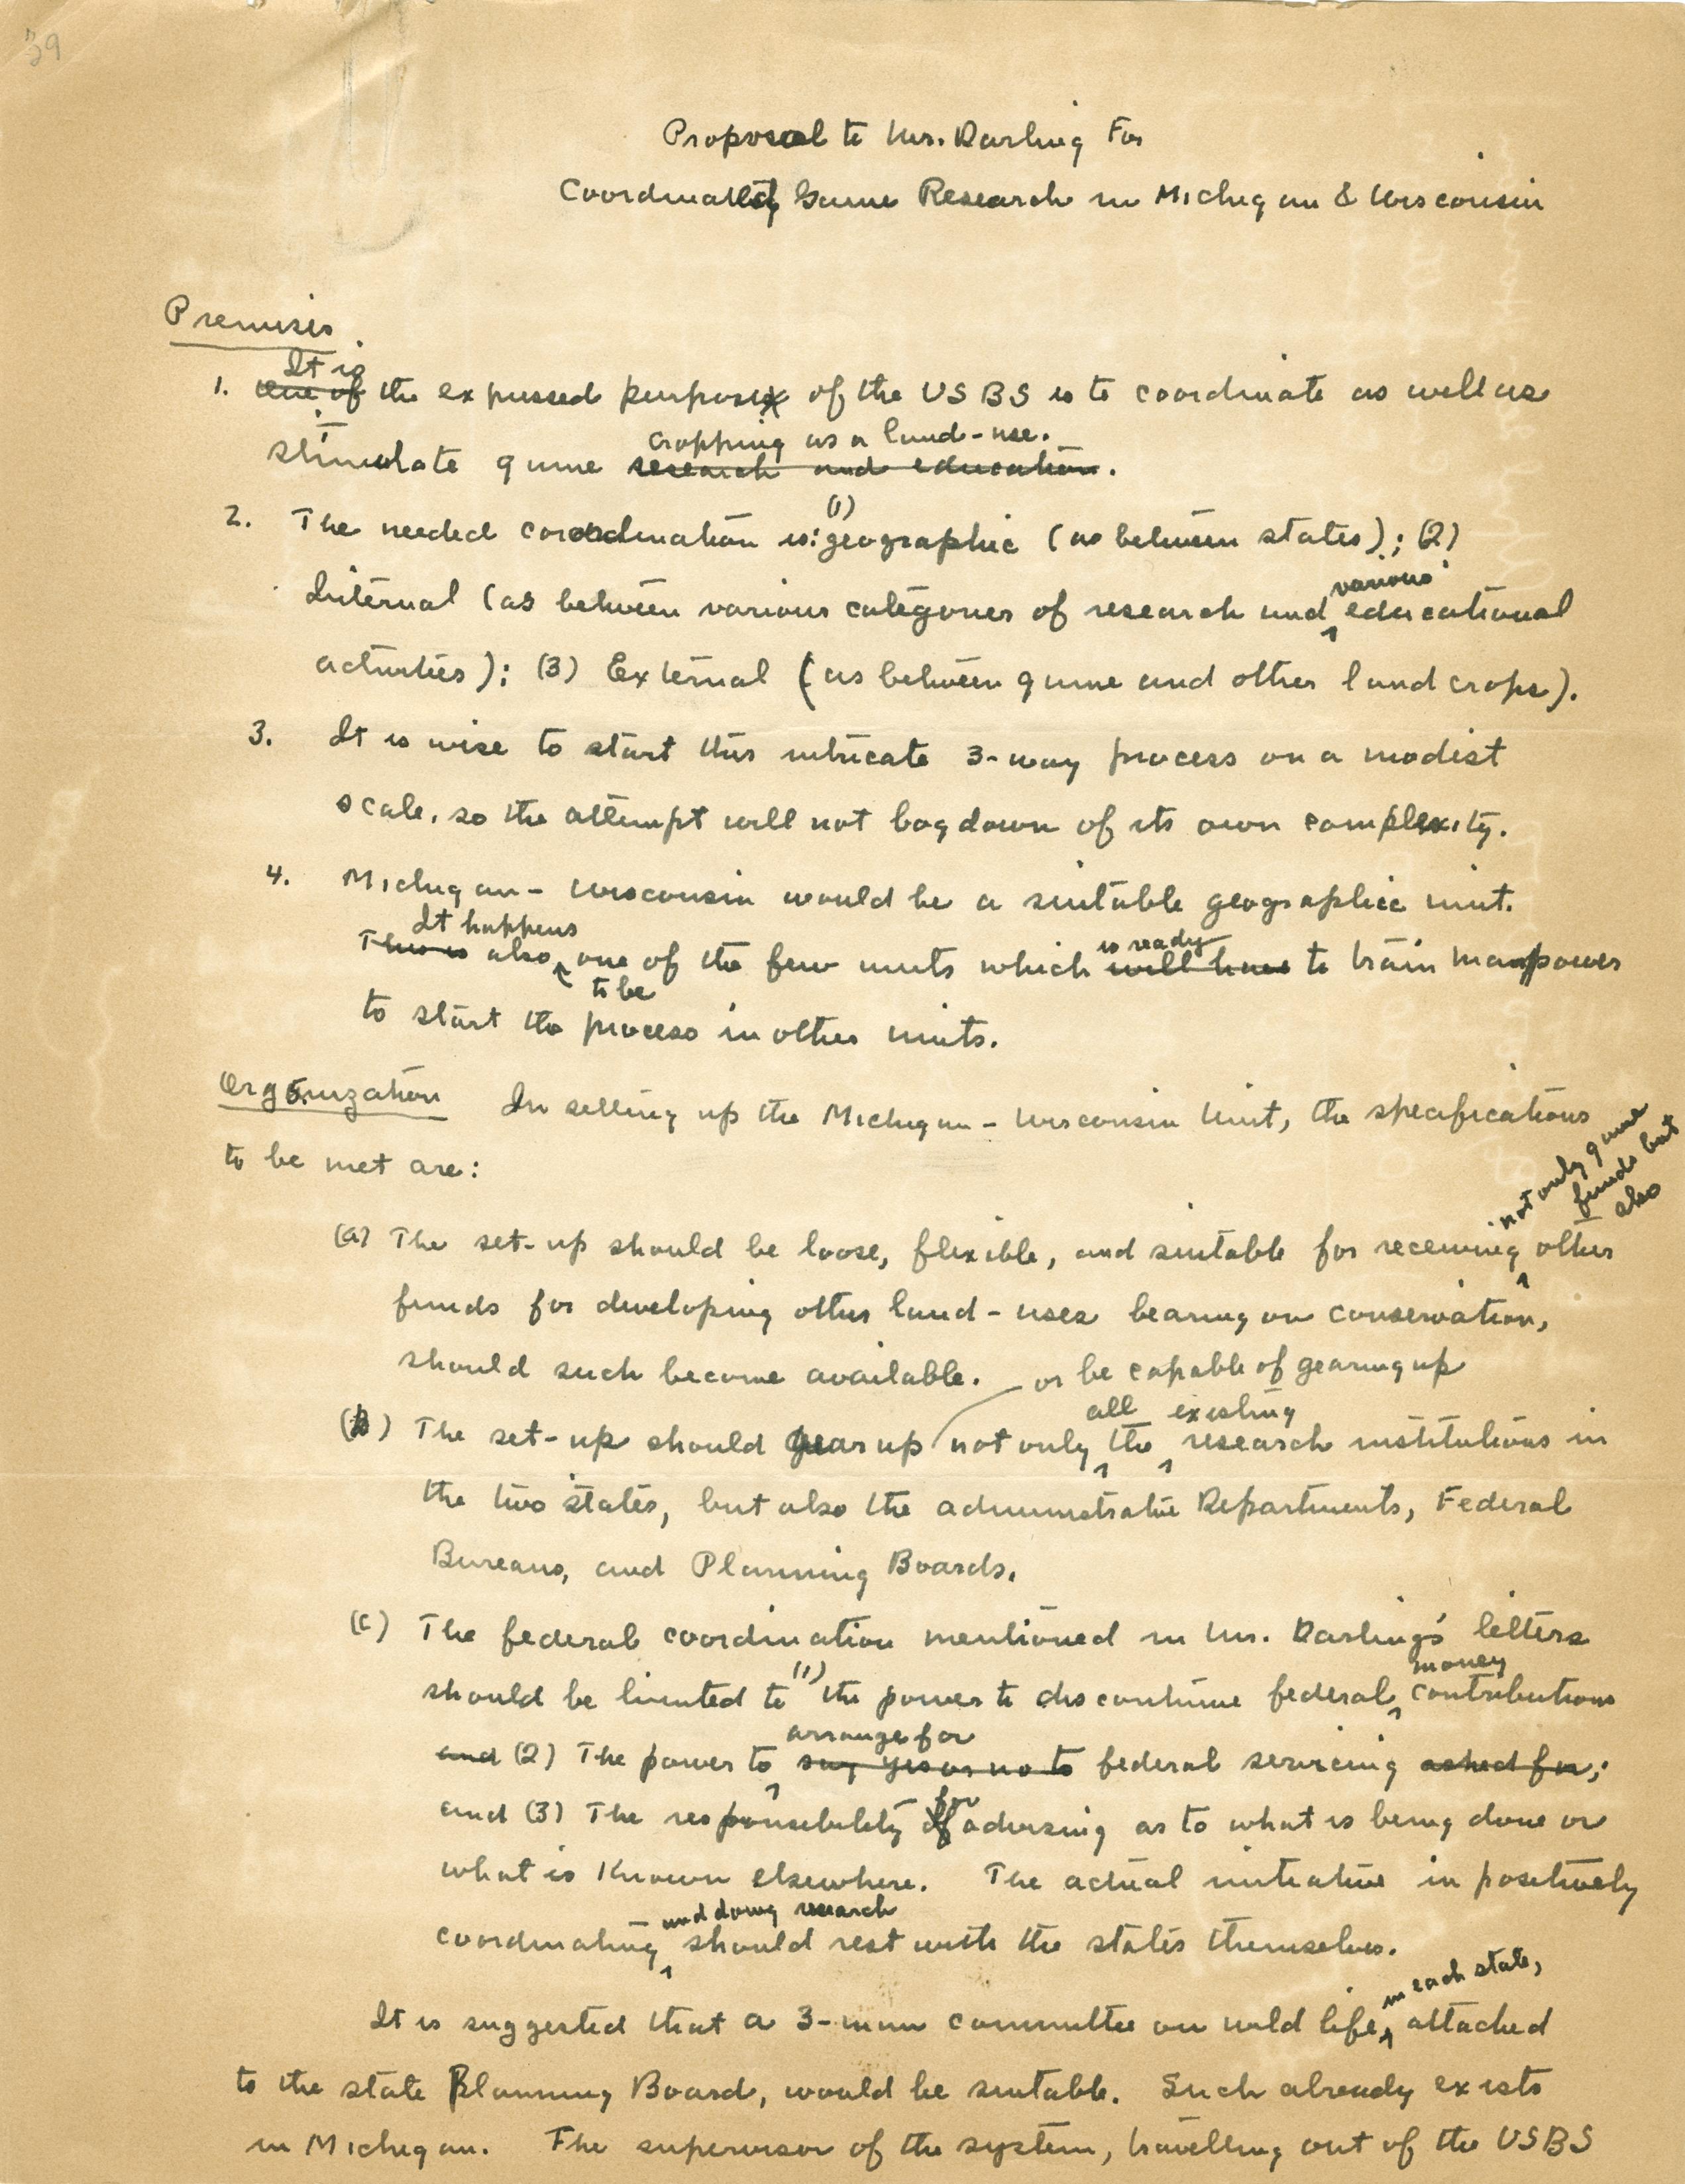 39
Proposal to Mr. Darling For
Coordinated Game Research in Michigan & Wisconsin
Premises
It is
1. One of the expressed purpose of the USBS is to coordinate as well as
cropping as a land-use.
stimulate game research and education.
(1)
2. The needed coordination is: geographic (as between states); (2)
various
Internal (as between various categories of research and educational
activities); (3) External (as between game and other land crops).
3. It is wise to start this intricate 3-way process on a modest
scale, so the attempt will not bog down of its own complexity.
4. Michigan - Wisconsin would be a suitable geographic unit.
It happens
is ready
This is also one of the few units which will have to train manpower
to be
to start the process in other units.
Organization In setting up the Michigan - Wisconsin Unit, the specifications
to be met are:
not only game
funds but
also
(a) The set-up should be loose, flexible, and suitable for receiving other
funds for developing other land-uses bearing on conservation,
should such become available.
or be capable of gearing up
all existing
(b) The set-up should gear up not only the research institutions in
the two states, but also the administrative Departments, Federal
Bureaus, and Planning Boards.
(c) The federal coordination mentioned in Mr. Darling's letters
(1) money
should be limited to the power to discontinue federal contributions
arrange for
and (2) The power to say yes or no to federal servicing asked for;
for
and (3) The responsibility of advising as to what is being done or
what is known elsewhere. The actual initiative in positively
and doing research
coordinating should rest with the states themselves.
in each state,
It is suggested that a 3-man committee on wild life, attached
to the state Planning Board, would be suitable. Such already exists
in Michigan. The supervisor of the system, travelling out of the USBS